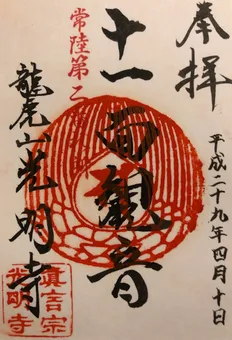 奉拝
平成二十九年四月十日
十一面觀音
常陸第二
龍尾山光明寺
眞言宗
光明寺